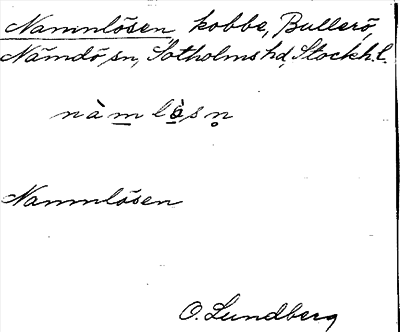 Nammlösen, kobbe, Bullerö,
Nämdö sn, Sotholms hd, Stockh. l.
nàm̲lò̲sn̥
Nammlösen
O. Lundberg